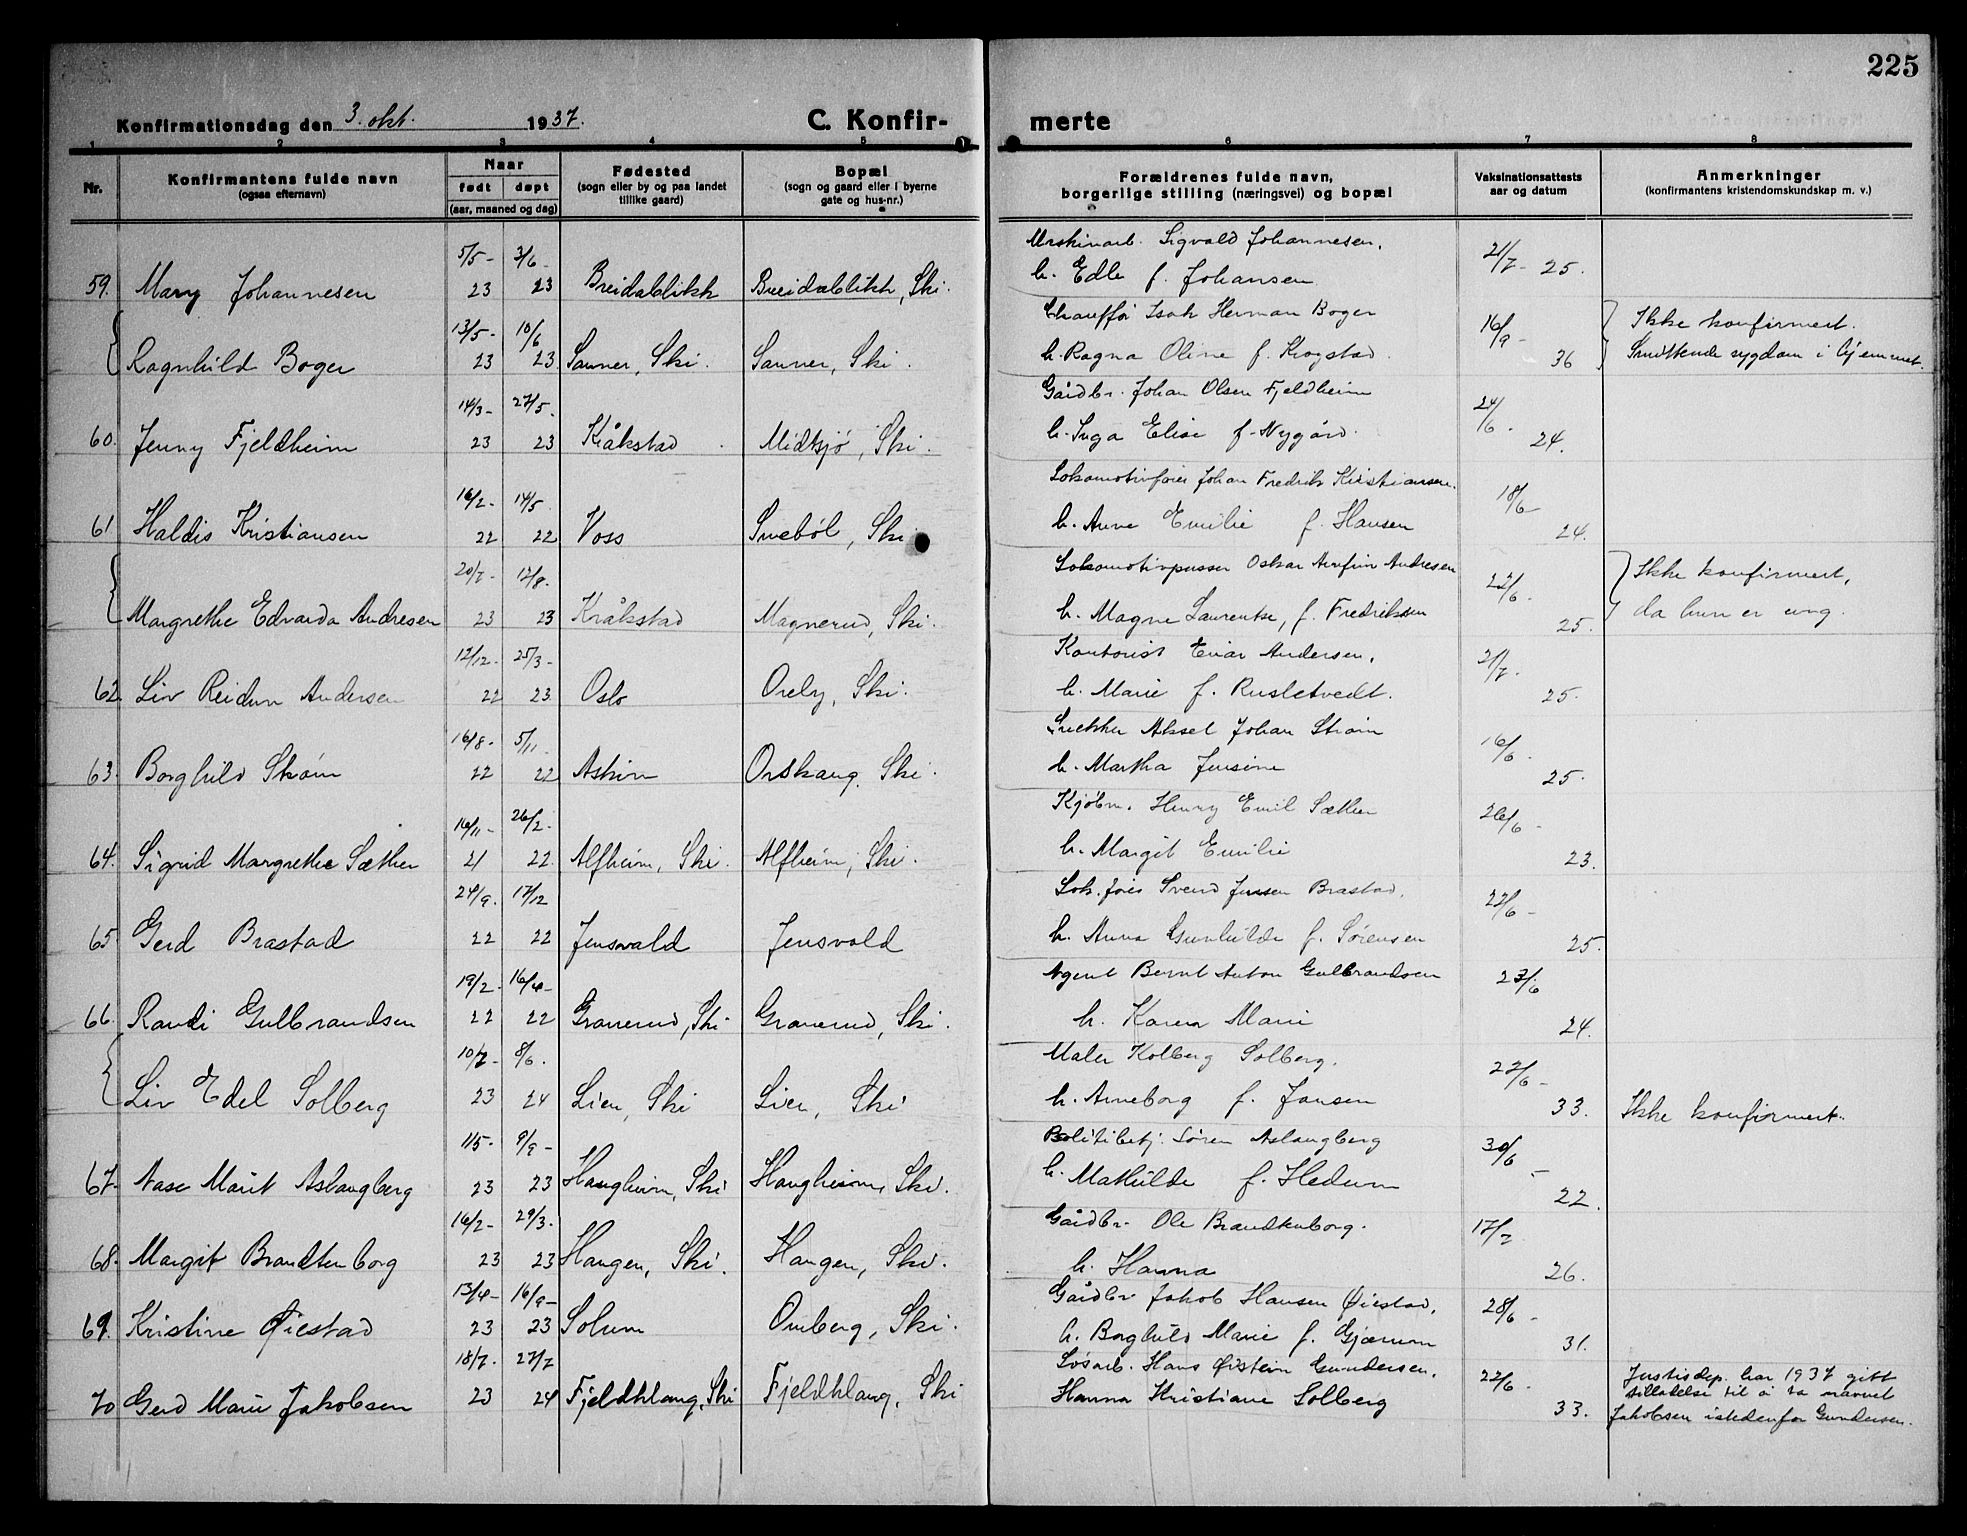 225
Konfirmationsdag den 3. okt. 1937. C. Konfir- merte
1 2 3 4 5 6 7 8
Nr. Konfirmantens fulde navn (ogsaa efternavn) Naar født døpt (aar, maaned og dag) Fødested (sogn eller by og paa landet tillike gaard) Bopæl (sogn og gaard eller i byerne gate og hus-nr.) Forældrenes fulde navn, borgerlige stilling (næringsvei) og bopæl Vaksinationsattests aar og datum Anmerkninger (konfirmantens kristendomskundskap m. v.)
5/5- 3/6- Maskinarb. Sigvald Johannesen, 21/7-
59. Mary Johannesen 23 23 Breidablikk Breidablikk, Ski. h. Edle f. Johansen 25.
13/5- 10/6 Chauffør Isak Herman Boger 16/9- Ikke konfirmert.
Ragnhild Boger 23 23 Sanner, Ski. Sanner, Ski. h. Ragna Oline f. Krogstad. 36 Smittende sygdom i hjemmet.
14/3- 27/5. Gårdbr. Johan Olsen Fjeldheim 24/6.
60. Jenny Fjeldheim 23 23 Kråkstad Midtsjø, Ski. h. Inga Elise f. Nygård. 24.
16/2- 14/5. Lokomotivfører Johan Fredrik Kristiansen. 18/6-
61 Haldis Kristiansen 22 22 Voss Smebøl, Ski h. Anna Emilie f. Hansen 24.
20/7- 12/8. Lokomotivpusser Oskar Arnfinn Andresen 22/6. Ikke konfirmert,
Margrethe Edvarda Andresen 23 23 Kråkstad Magnerud, Ski. h. Magna Laurentse, f. Fredriksen 25. da hun er ung.
12/12- 25/3- Kontorist Einar Andersen, 21/7.
62. Liv Reidun Andersen 22 23 Oslo Oreby, Ski. h. Marie f. Rusletvedt. 25.
16/8. 5/11. Snekker Aksel Johan Strøm 16/6.
63. Borghild Strøm 22 22 Askim Orskaug, Ski. h. Martha Jensine 25.
16/11- 26/2- Kjøbm. Henry Emil Sæther 26/6-
64. Sigrid Margrethe Sæther 21 22. Alfheim, Ski. Alfheim, Ski. h. Margit Emilie 23.
24/9. 17/12 Lok.fører Svend Jensen Brastad. 22/6-
65. Gerd Brastad 22 22 Jensvold Jensvold h. Anna Gunhilde f. Sørensen 25.
19/2- 16/4- Agent Bernt Anton Gulbrandsen 23/6
66. Randi Gulbrandsen 22 22 Granerud, Ski. Granerud, Ski. h. Karen Marie 24.
10/7- 8/6. Maler Kolberg Solberg. 22/6-
Liv Edel Solberg 23 24 Lien, Ski Lien, Ski h. Anneborg f. Jansen 33. Ikke konfirmert.
1/5- 9/9- Politibetj. Søren Aslangberg 30/6-
67. Aase Marit Aslangberg 23 23 Haugheim, Ski Haugheim, Ski. h. Mathilde f. Hedum 22.
16/2- 29/3. Gårdbr. Ole Brandtenborg. 17/7.
68. Margit Brandtenborg 23 23 Haugen, Ski. Haugen, Ski. h. Hanna 26.
13/4- 16/9- Gårdbr Jakob Hansen Øiestad, 28/6-
69. Kristine Øiestad 23 23 Solum Omberg, Ski. h. Borghild Marie f. Gjærum 31.
18/7. 27/7 Løsarb. Hans Øistein Gundersen, 22/6- Justisdep. har 1937 gitt
70 Gerd Marie Jakobsen 23 24 Fjeldklang, Ski Fjeldklang, Ski Hanna Kristiane Solberg 33. tillatelse til å ta navnet
Jakobsen istedenfor Gundersen.